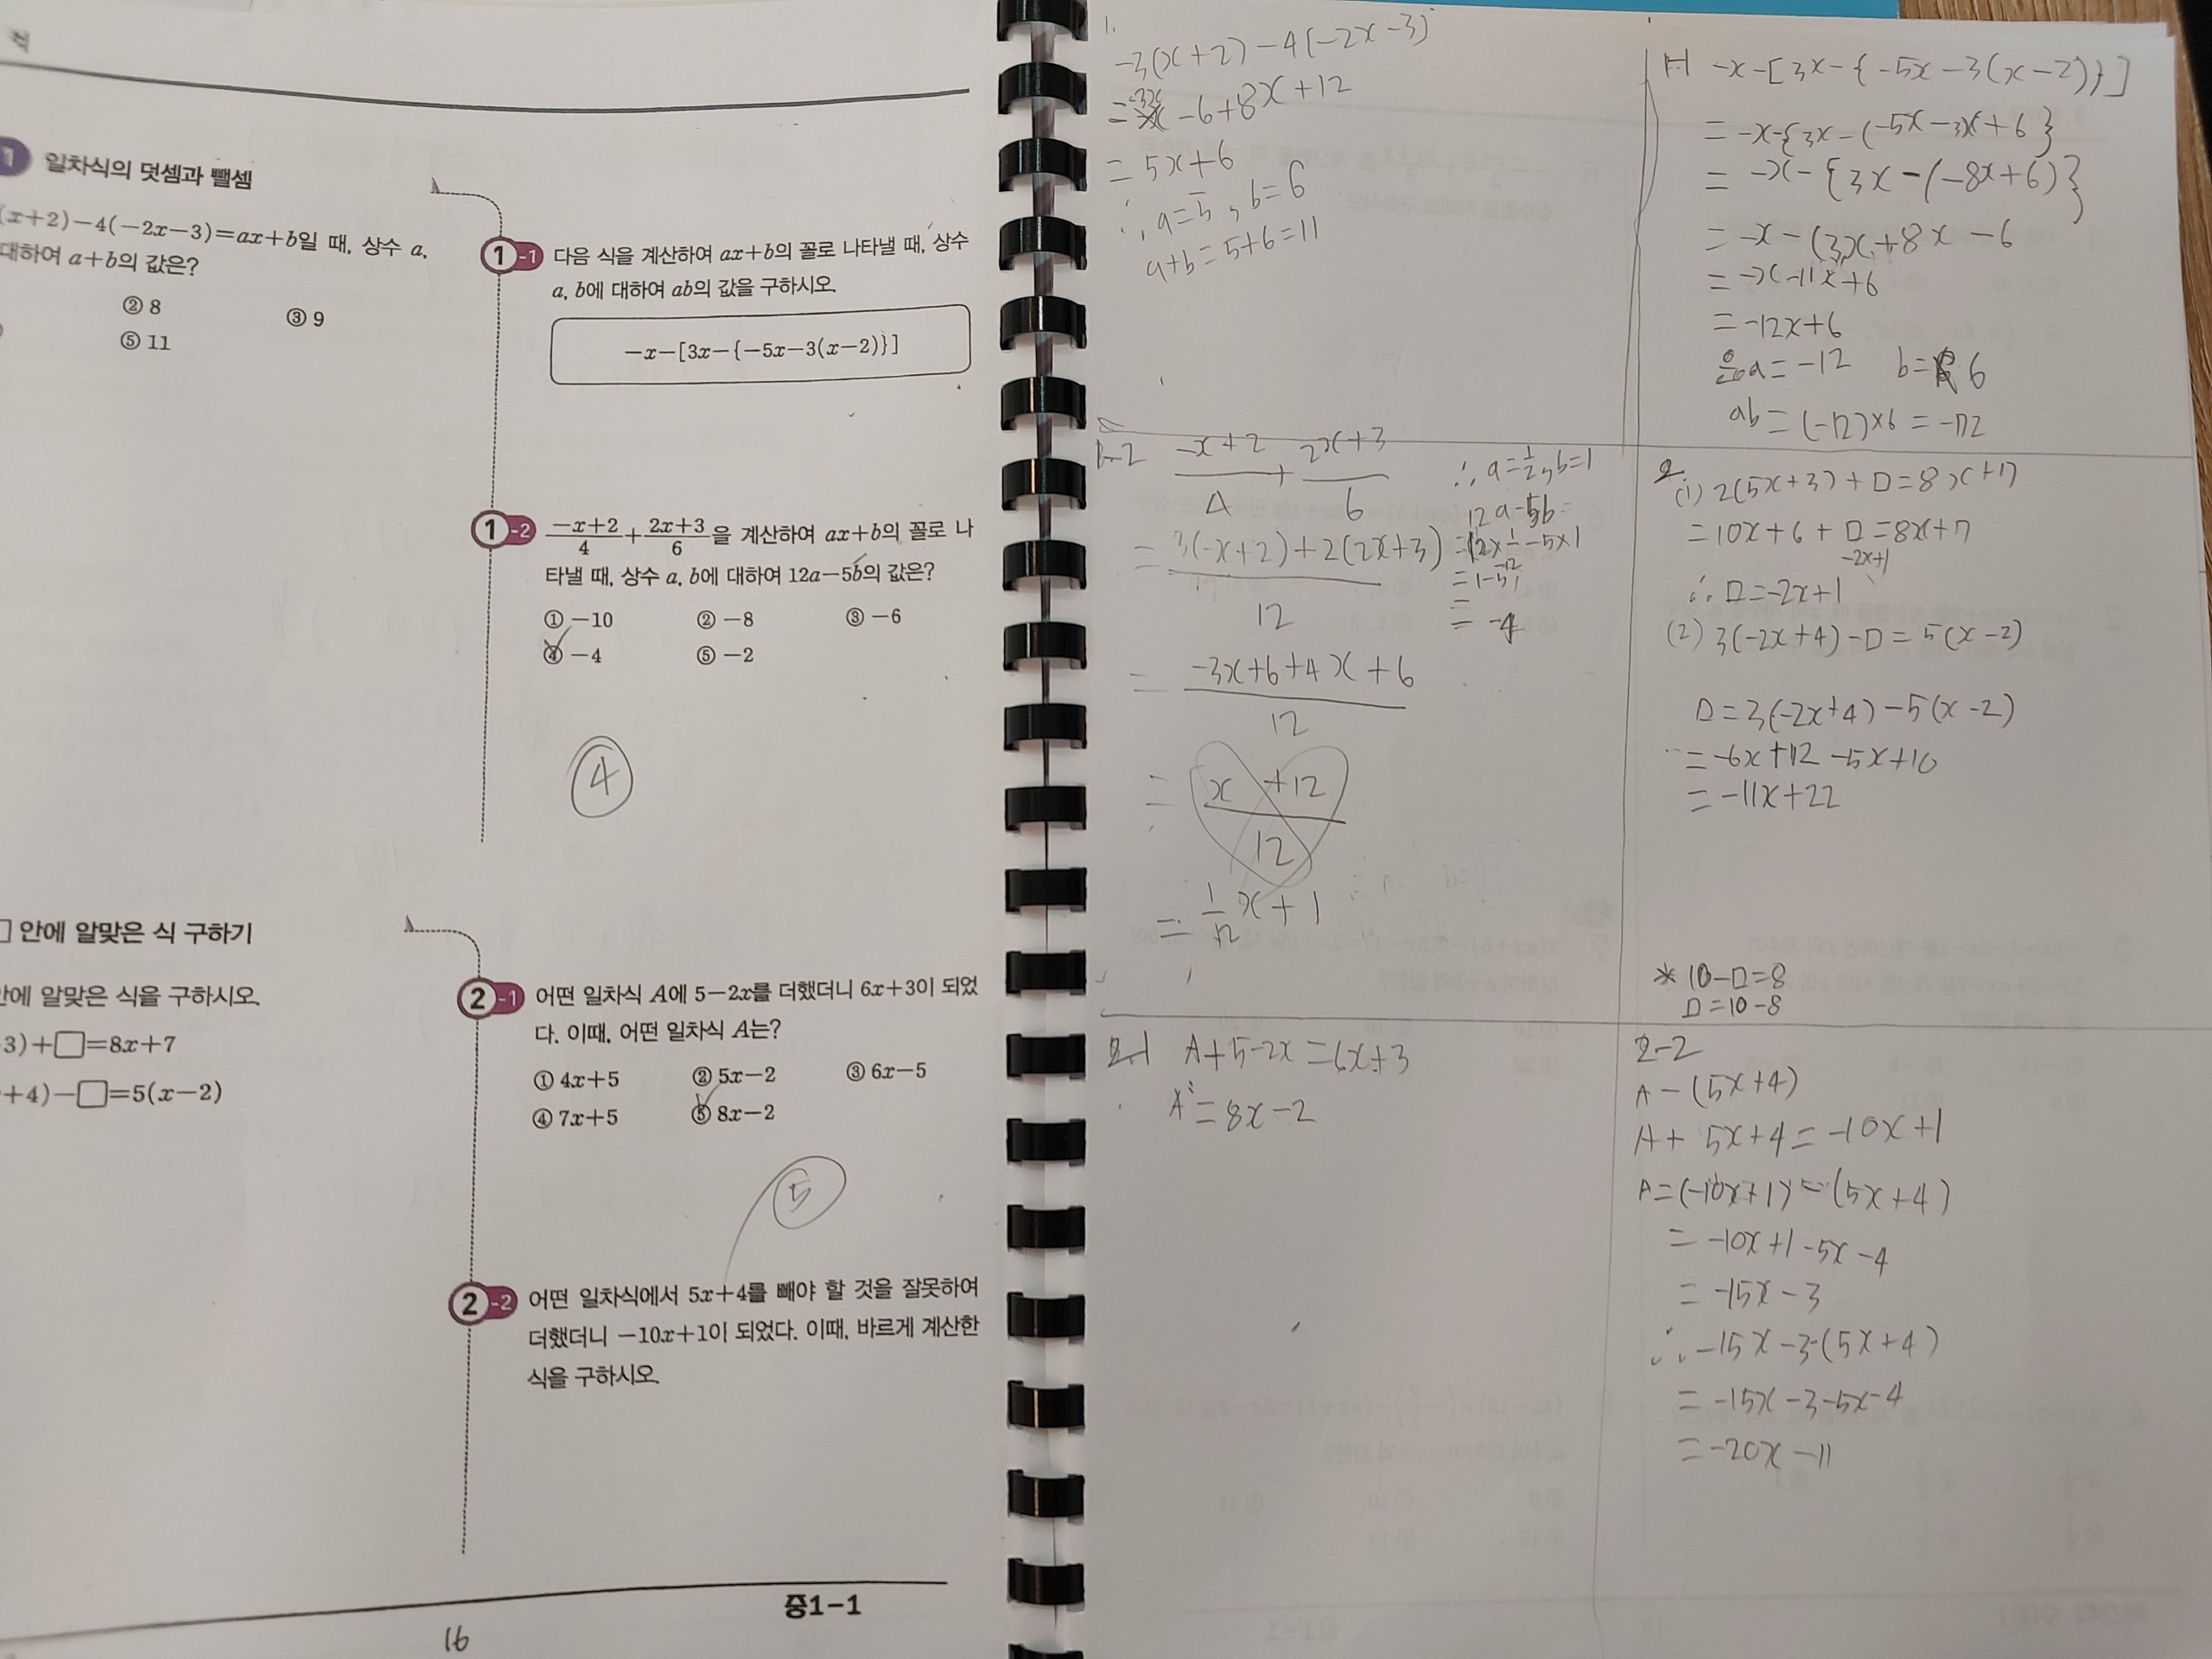 1 일차식의 덧셈과 뺄셈
(x+2)-4(-2x-3)=ax+b일 때, 상수 a,
대하여 a+b의 값은?
② 8 ③ 9
⑤ 11
1-1 다음 식을 계산하여 ax+b의 꼴로 나타낼 때, 상수
a, b에 대하여 ab의 값을 구하시오.
-x-[3x-{-5x-3(x-2)}]
1-2 \frac{-x+2}{4}+\frac{2x+3}{6}을 계산하여 ax+b의 꼴로 나
타낼 때, 상수 a, b에 대하여 12a-5b의 값은?
① -10 ② -8 ③ -6
④ -4 ⑤ -2
④
□ 안에 알맞은 식 구하기
안에 알맞은 식을 구하시오.
3)+□=8x+7
+4)-□=5(x-2)
2-1 어떤 일차식 A에 5-2x를 더했더니 6x+3이 되었
다. 이때, 어떤 일차식 A는?
① 4x+5 ② 5x-2 ③ 6x-5
④ 7x+5 ⑤ 8x-2
⑤
2-2 어떤 일차식에서 5x+4를 빼야 할 것을 잘못하여
더했더니 -10x+1이 되었다. 이때, 바르게 계산한
식을 구하시오.
중1-1
16
1.
-3(x+2)-4(-2x-3)
=-3x-6+8x+12
=5x+6
∴ a=5, b=6
a+b=5+6=11
1-1 -x-[3x-{-5x-3(x-2)}]
=-x-{3x-(-5x-3x+6}
=-x-{3x-(-8x+6)}
=-x-(3x+8x-6
=-x-11x+6
=-12x+6
a=-12 b=6
ab=(-12)×6=-72
1-2 \frac{-x+2}{4}+\frac{2x+3}{6}
=\frac{3(-x+2)+2(2x+3)}{12}
=\frac{-3x+6+4x+6}{12}
=\frac{x+12}{12}
=\frac{1}{12}x+1
∴ a=\frac{1}{12}, b=1
12a-5b=
=12×\frac{1}{12}-5×1
=1-5
=-4
2.
(1) 2(5x+3)+□=8x+7
=10x+6+□=8x+7
-2x+1
∴ □=-2x+1
(2) 3(-2x+4)-□=5(x-2)
□=3(-2x+4)-5(x-2)
=-6x+12-5x+10
=-11x+22
* 10-□=8
□=10-8
2-1 A+5-2x=6x+3
A=8x-2
2-2
A-(5x+4)
A+5x+4=-10x+1
A=(-10x+1)-(5x+4)
=-10x+1-5x-4
=-15x-3
∴ -15x-3-(5x+4)
=-15x-3-5x-4
=-20x-11